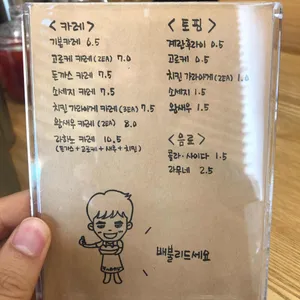 <카레>
기본카레 6.5
고로케 카레 (2EA) 7.0
돈까스 카레 7.5
소세지 카레 7.5
치킨 가라아게 카레 (3EA) 7.5
왕새우 카레 (2EA) 8.0
라히는 카레 10.5
(돈가스+고로케+새우+치킨)
<토핑>
계란후라이 0.5
고로케 0.5
치킨 가라아게 (2EA) 1.0
소세지 1.5
왕새우 1.5
<음료>
콜라·사이다 1.5
라무네 2.5
배불리드세요